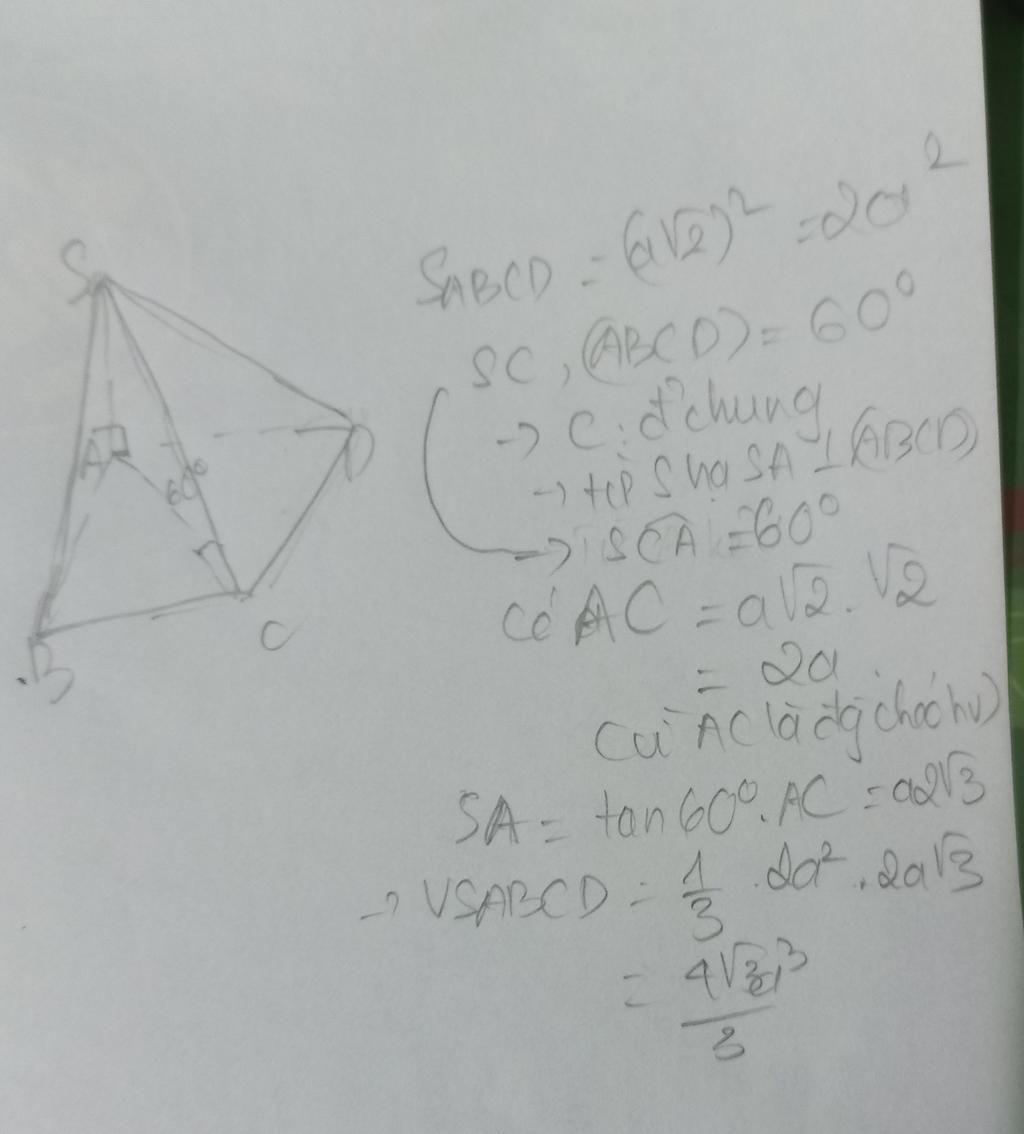 S
A
60°
D
B
C
SABCD = (a√2)² = 2a²
SC, (ABCD) = 60°
→ C: đ' chung
→ từ S hạ SA ⊥ (ABCD)
→ SCA = 60°
Có AC = a√2 . √2
= 2a
(vì AC là đg chéo hv)
SA = tan 60° . AC = a2√3
→ VSABCD = 1/3 . 2a² . 2a√3
= 4√3a³/3